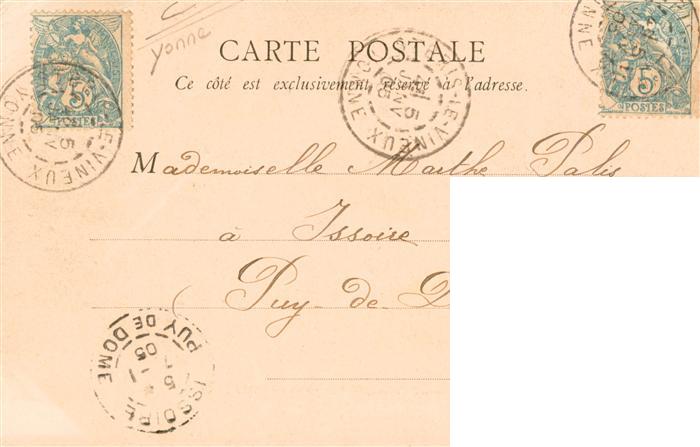 Yonne
CARTE POSTALE
Ce côté est exclusivement réservé à l'adresse.
5c
POSTES
5c
POSTES
-LE-VINEUX
YONNE
5
JANV
05
Mademoiselle Marthe Palis
à Issoire
Puy-de-D
ISSOIRE
PUY DE DOME
5
1
05